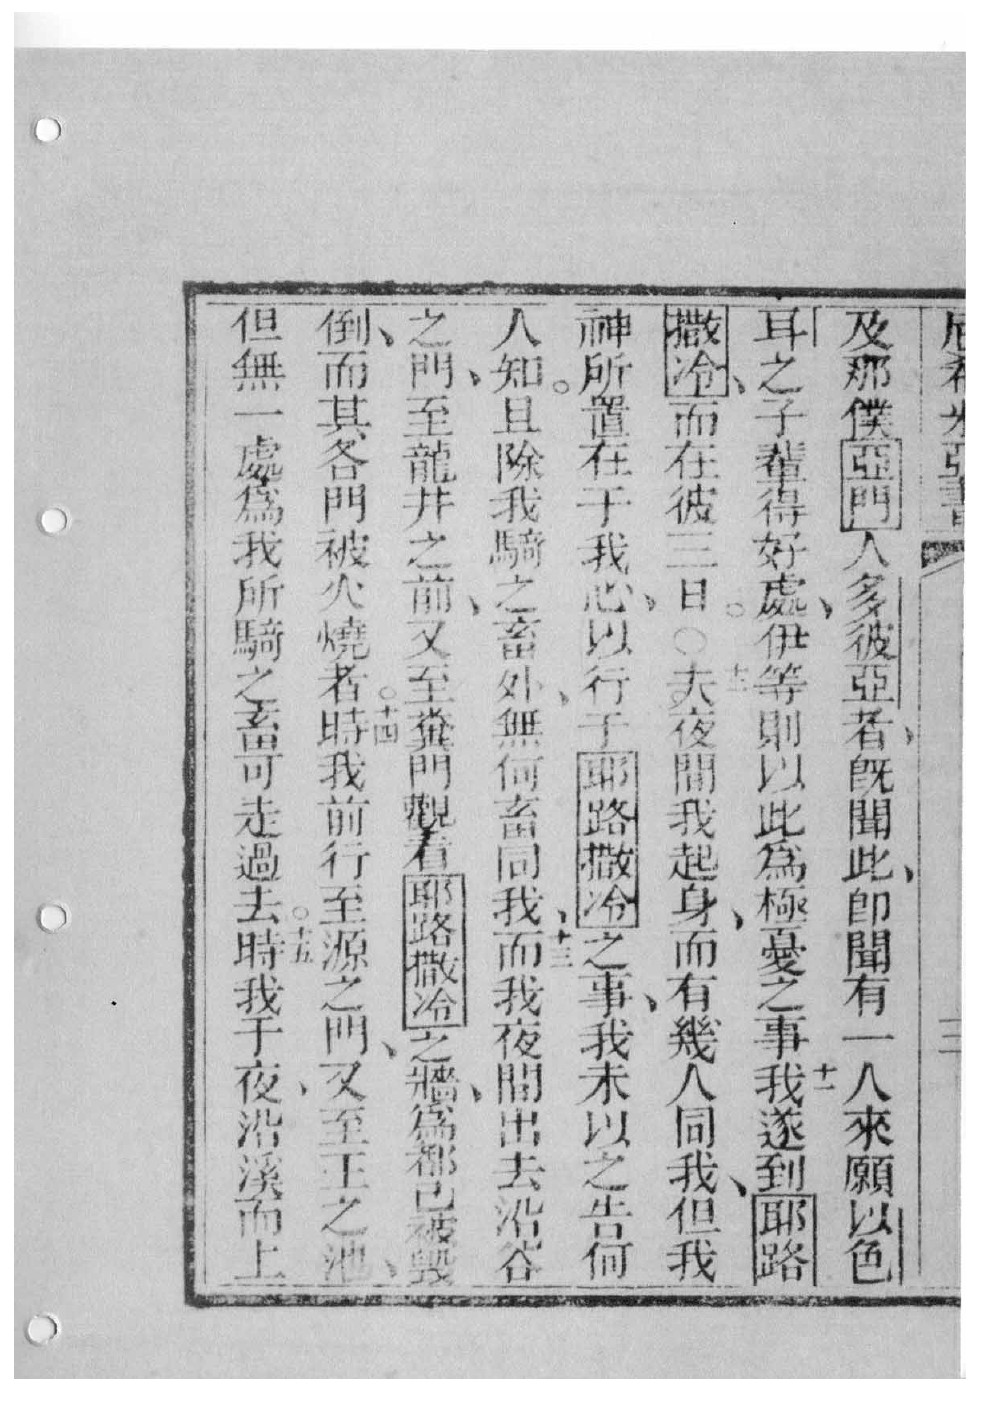 尼希米亞書 二
及那僕亞門人多彼亞者、旣聞此、卽聞有一人來願以色
耳之子輩得好處、伊等則以此爲極憂之事十一我遂到耶路
撒冷、而在彼三日。○十二夫夜間我起身、而有幾人同我、但我
神所置在于我心、以行于耶路撒冷之事、我未以之告何
人知。且除我騎之畜外、無何畜同我、十三而我夜間出去沿谷
之門、至龍井之前、又至糞門觀看耶路撒冷之牆、爲都已被毀
倒、而其各門被火燒者。十四時我前行至源之門、又至王之池、
但無一處爲我所騎之畜可走過去。十五時我于夜、沿溪而上